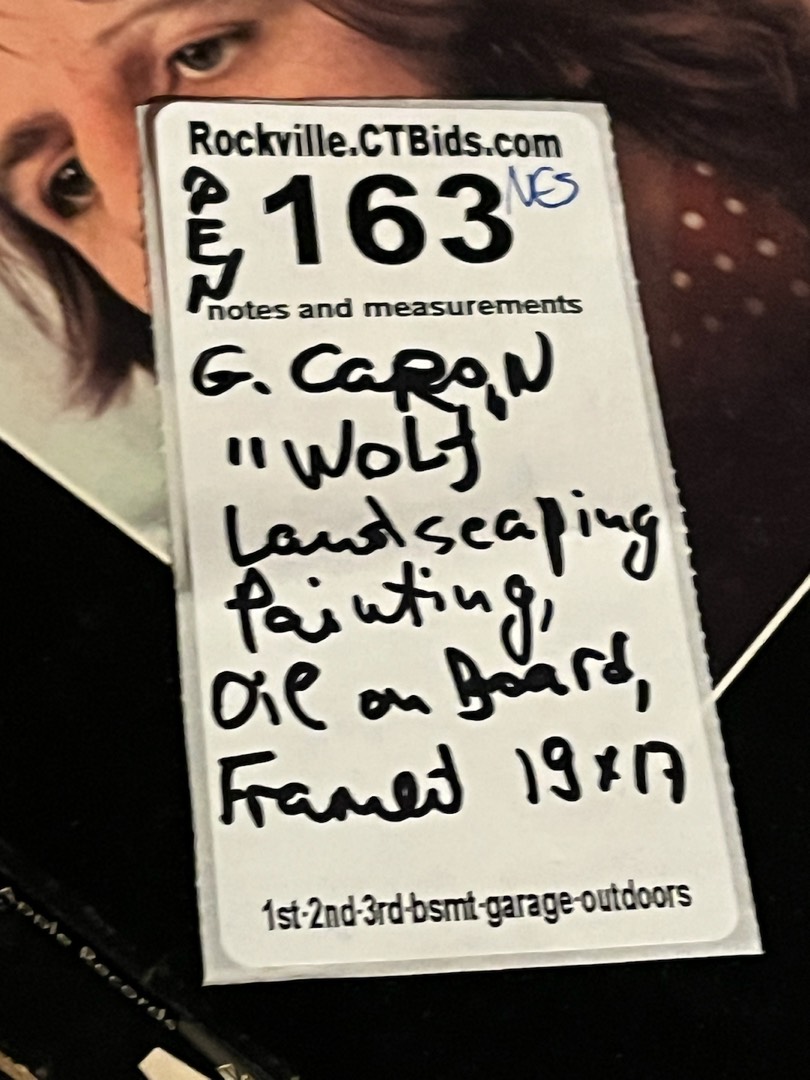 Rockville.CTBids.com
PEN 163 NES
notes and measurements
G. CARON
"Wolf"
Landscaping
Painting,
Oil on Board,
Framed 19x17
1st-2nd-3rd-bsmt-garage-outdoors
Apple Records